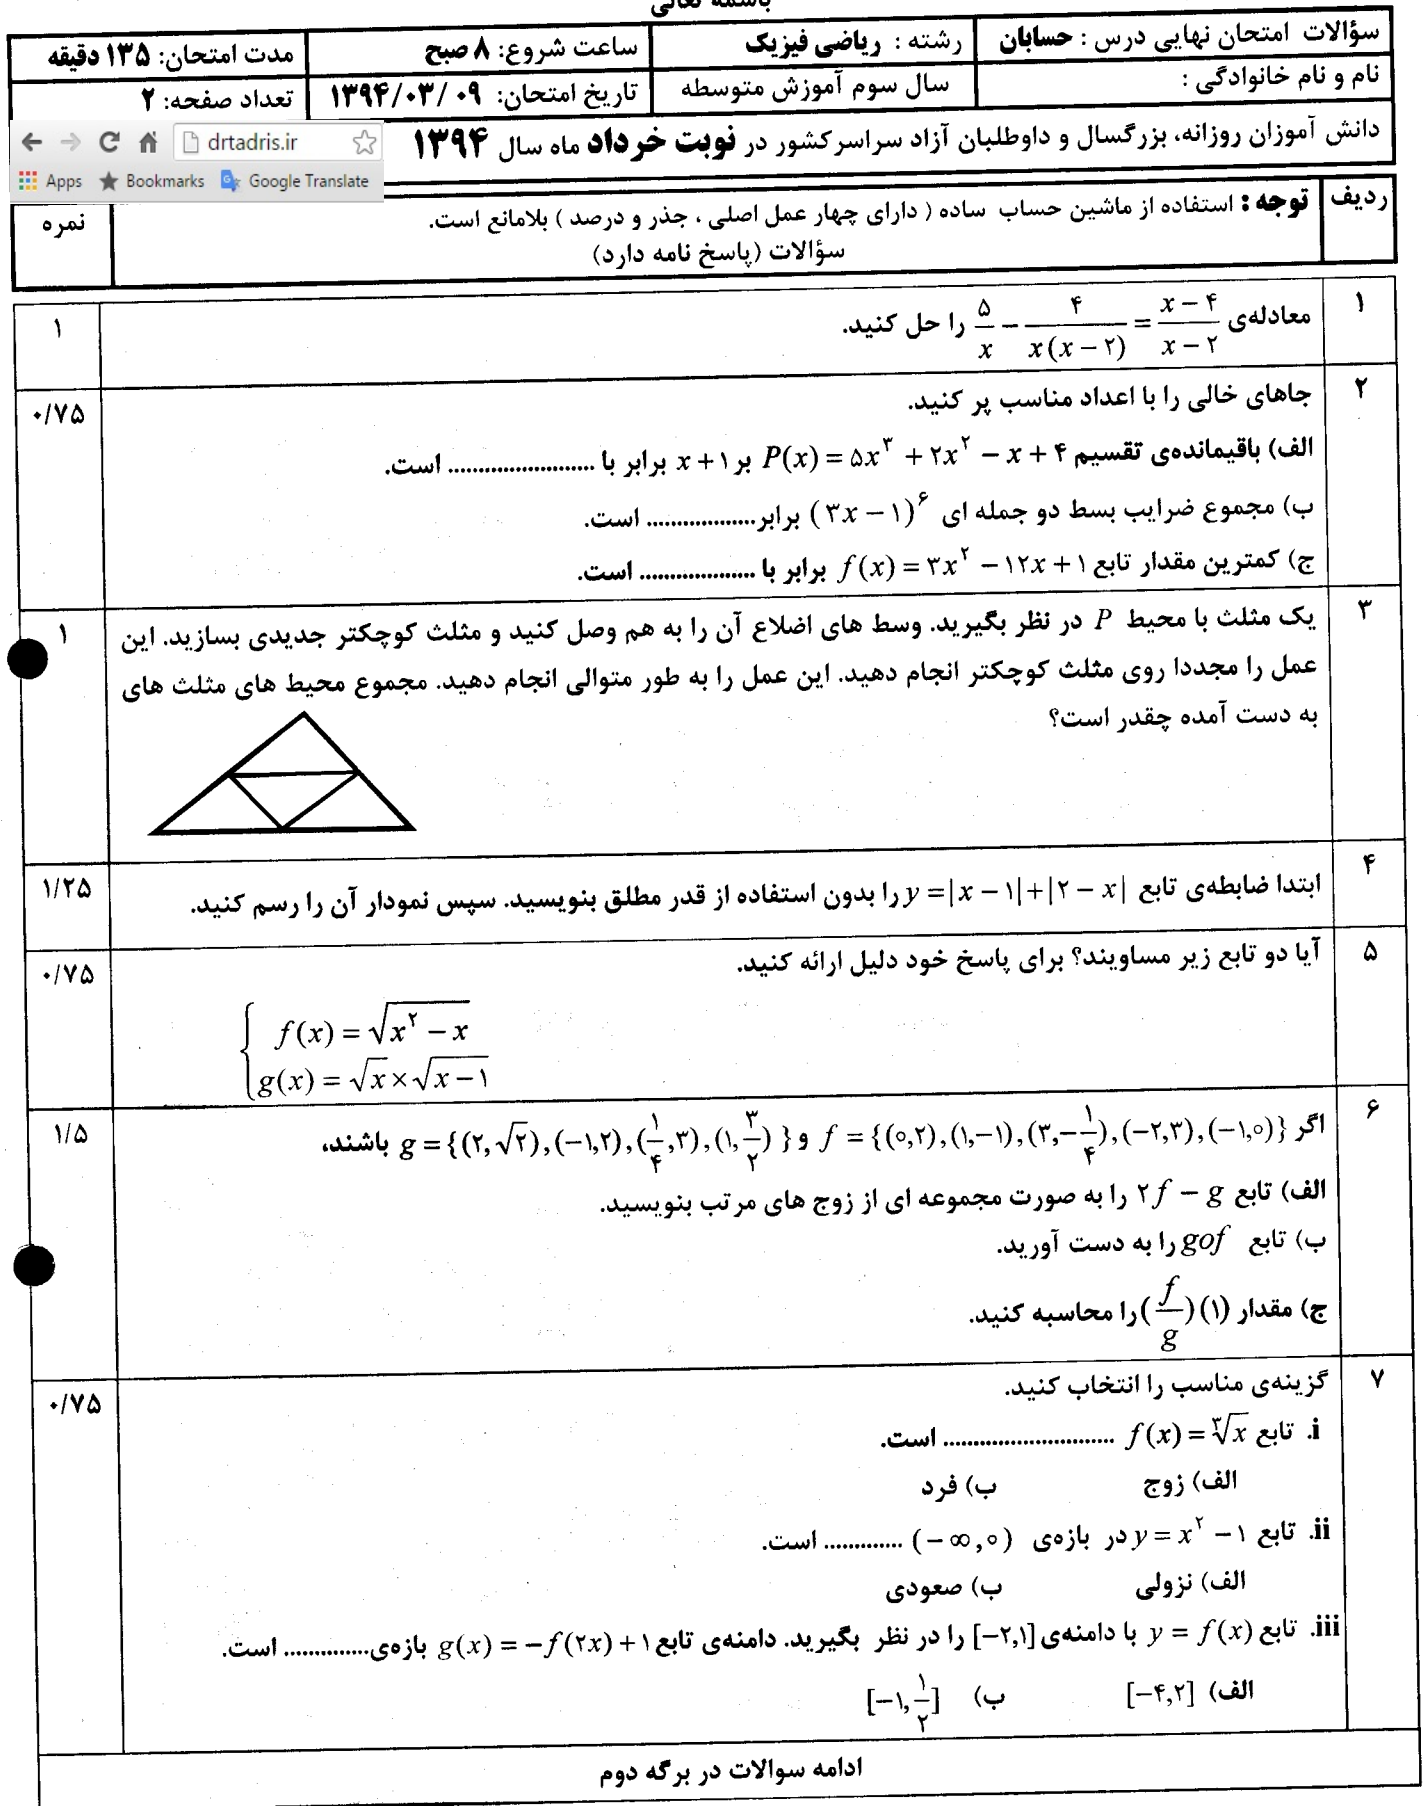 باسمه تعالی
سؤالات امتحان نهایی درس : حسابان | رشته : ریاضی فیزیک | ساعت شروع: ۸ صبح | مدت امتحان: ۱۳۵ دقیقه
نام و نام خانوادگی : | سال سوم آموزش متوسطه | تاریخ امتحان: ۰۹ /۱۳۹۴/۰۳ | تعداد صفحه: ۲
دانش آموزان روزانه، بزرگسال و داوطلبان آزاد سراسر کشور در نوبت خرداد ماه سال ۱۳۹۴
drtadris.ir
Apps Bookmarks Google Translate
ردیف | توجه : استفاده از ماشین حساب ساده ( دارای چهار عمل اصلی ، جذر و درصد ) بلامانع است. | نمره
سؤالات (پاسخ نامه دارد)
۱ | معادله‌ی ۵/x − ۴/(x(x − ۲)) = (x − ۴)/(x − ۲) را حل کنید. | ۱
۲ | جاهای خالی را با اعداد مناسب پر کنید. | ۰/۷۵
الف) باقیمانده‌ی تقسیم P(x) = ۵x³ + ۲x² − x + ۴ بر x + ۱ برابر با ........................ است.
ب) مجموع ضرایب بسط دو جمله ای (۳x − ۱)⁶ برابر.................. است.
ج) کمترین مقدار تابع f(x) = ۳x² − ۱۲x + ۱ برابر با ................... است.
۳ | یک مثلث با محیط P در نظر بگیرید. وسط های اضلاع آن را به هم وصل کنید و مثلث کوچکتر جدیدی بسازید. این | ۱
عمل را مجددا روی مثلث کوچکتر انجام دهید. این عمل را به طور متوالی انجام دهید. مجموع محیط های مثلث های
به دست آمده چقدر است؟
۴ | ابتدا ضابطه‌ی تابع y = |x − ۱| + |۲ − x| را بدون استفاده از قدر مطلق بنویسید. سپس نمودار آن را رسم کنید. | ۱/۲۵
۵ | آیا دو تابع زیر مساویند؟ برای پاسخ خود دلیل ارائه کنید. | ۰/۷۵
f(x) = √(x² − x)
g(x) = √x × √(x − ۱)
۶ | اگر f = {(۰,۲),(۱,−۱),(۳,−۱/۴),(−۲,۳),(−۱,۰)} و g = {(۲,√۲),(−۱,۲),(۱/۴,۳),(۱,۳/۲)} باشند، | ۱/۵
الف) تابع ۲f − g را به صورت مجموعه ای از زوج های مرتب بنویسید.
ب) تابع gof را به دست آورید.
ج) مقدار (f/g)(۱) را محاسبه کنید.
۷ | گزینه‌ی مناسب را انتخاب کنید. | ۰/۷۵
i. تابع f(x) = ∛x ............................ است.
الف) زوج ب) فرد
ii. تابع y = x² − ۱ در بازه‌ی (−∞,۰) ............. است.
الف) نزولی ب) صعودی
iii. تابع y = f(x) با دامنه‌ی [−۲,۱] را در نظر بگیرید. دامنه‌ی تابع g(x) = −f(۲x) + ۱ بازه‌ی.............. است.
الف) [−۴,۲] ب) [−۱,۱/۲]
ادامه سوالات در برگه دوم